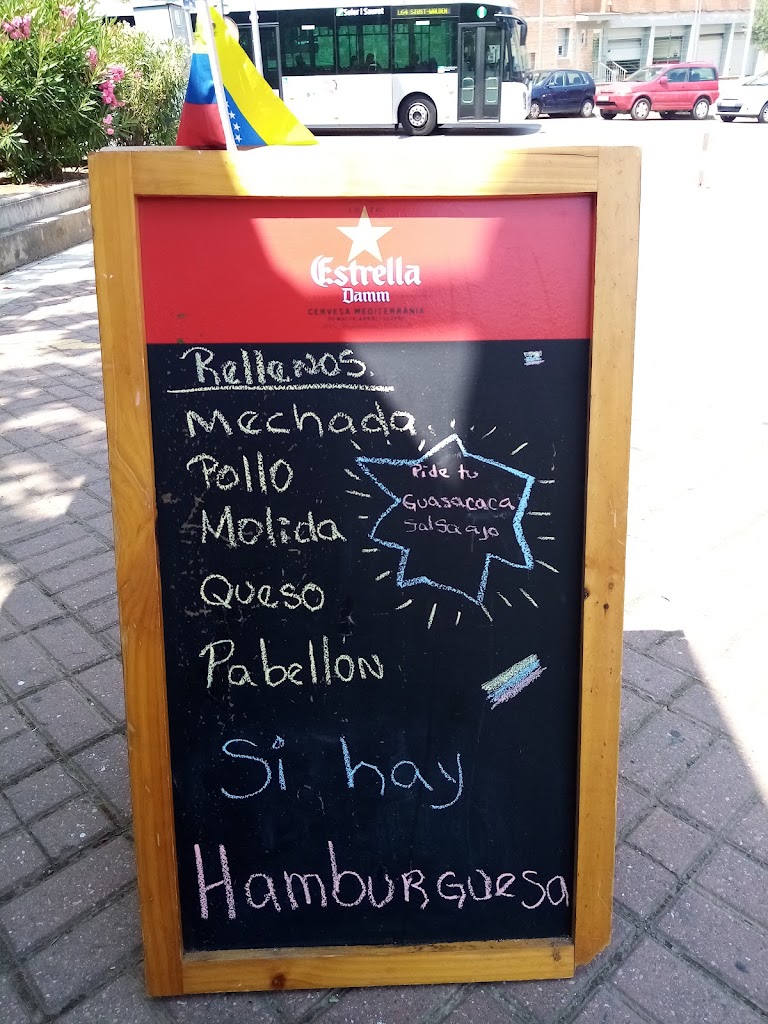 Soler i Sauret
L64 SJUST-WALDEN
Estrella
Damm
CERVESA MEDITERRÀNIA
Rellenos.
Mechada
Pollo
Molida
Queso
Pabellón
Pide tu
Guasacaca
Salsa ajo
Si hay
Hamburguesa